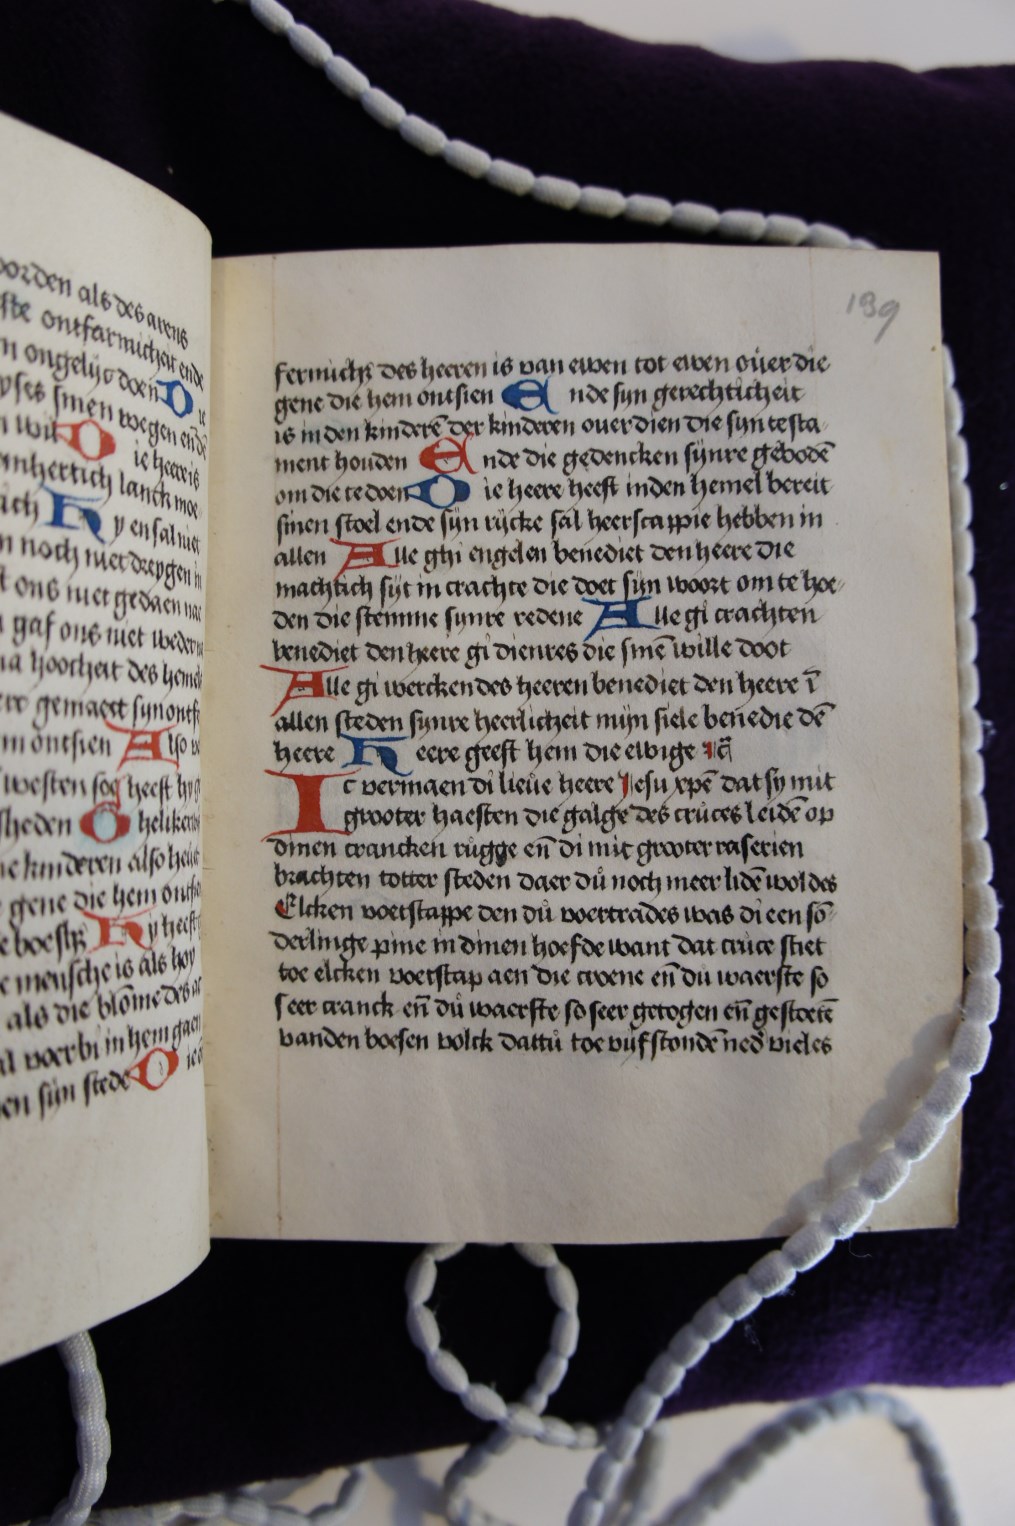 oorden als des arens
ste ontfarmicheit ende
n ongelijc doen D ie
yses sinen wegen ende
n wil D ie heere is
mhertich lanck moe
ach H y en sal niet
n noch niet dreygen in
t ons niet gedaen nae
n gaf ons niet weder
na hoocheit des hemels
ere gemaect syn ontf
m ontsien A lso
westen soe heeft hy
sheden G helikerw
ne kinderen also heeft
gene die hem ontsi
H y heeft
mensche is als hoy
als die blome des ac
al voerbi in hem gaen
en sijn stede D ie
139
fermichz des heeren is van ewen tot ewen ouer die
gene die hem ontsien E nde syn gerechticheit
is in den kinderē der kinderen ouer dien die syn testa-
ment houden E nde die gedencken synre gebodē
om die te doen D ie heere heeft in den hemel bereit
sinen stoel ende syn rijcke sal heerscappie hebben in
allen A lle ghi engelen benediet den heere die
machtich sijt in crachte die doet sijn woort om te hoe-
den die stemme synre redene A lle gi crachten
benediet den heere gi dienres die sinē wille doot
A lle gi wercken des heeren benediet den heere ī
allen steden synre heerlicheit mijn siele benedie dē
heere H eere geeft hem die ewige rā
I c vermaen di lieue heere Jesu xpē dat sy mit
grooter haesten die galge des cruces leidē op
dinen crancken rugge eñ di mit grooter raserien
brachten totter steden daer du noch meer lidē woldes
Elcken voetstappe den du voertrades was di een sō-
derlinge pine in dinen hoefde want dat cruce stiet
toe elcken voetstap aen die croene eñ du waerste so
seer cranck eñ du waerste so seer getogen eñ gestoetē
vanden boesen volck dattu toe vijf stondē ned vieles